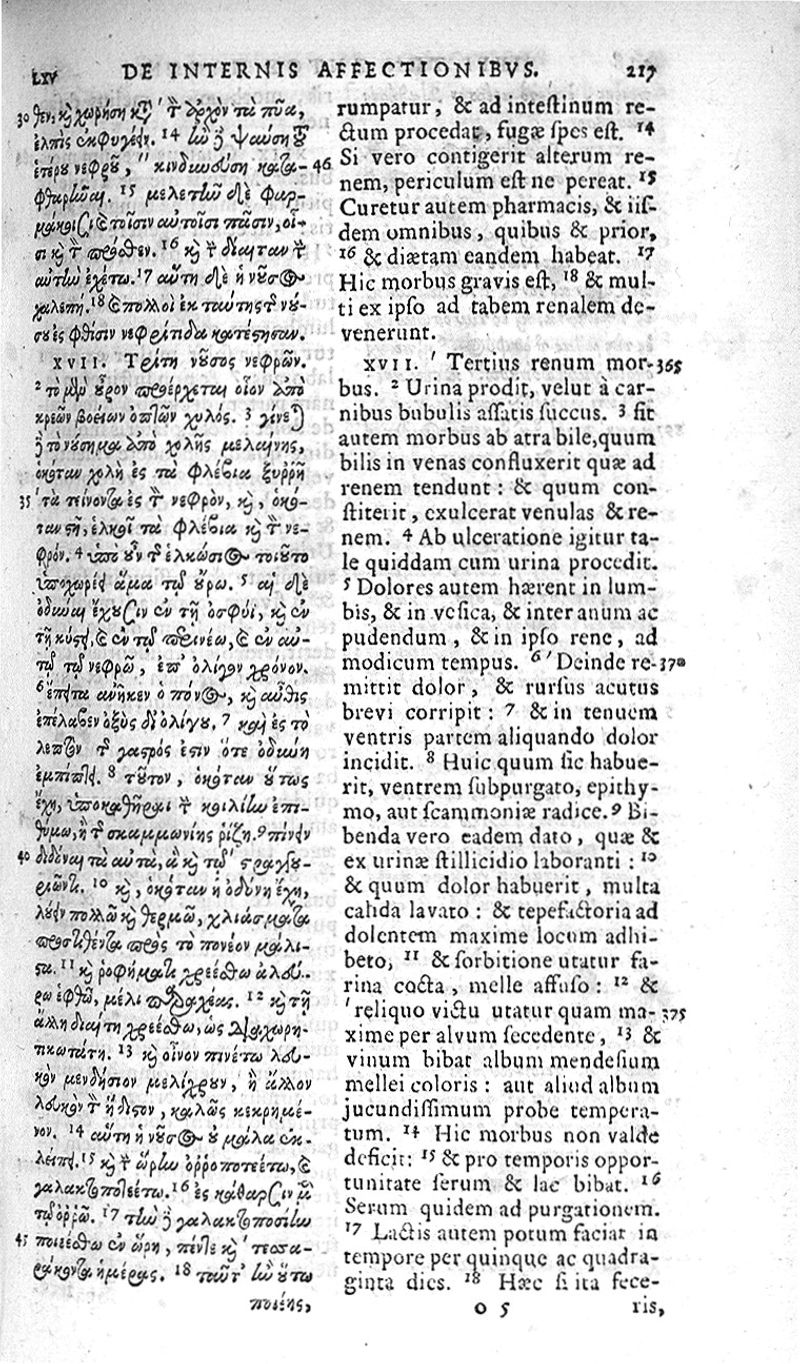 LXV DE INTERNIS AFFECTIONIBVS. 217
30 θεν, κὶ χωρήση κτ̃ τ̀ ἀρχὸν τὰ πῦα,
ἐλπὶς ἐκφυγέειν. 14 ἢν ἢ ψαύση τοῦ
ἑτέρου νεφροῦ, '' κινδιωεύση καταφθαρῆναι.
15 μελετᾶν δὲ φαρμάκοισι
τοῖσιν αὐτοῖσι πᾶσιν, οἷσι
κὶ τ̀ πρόσθεν. 16 κὶ τ̀ δίαιταν τ̀
αὐτὴν ἐχέτω. 17 αὕτη δὲ ἡ νοῦσος
χαλεπή. 18 & πολλοὶ ἐκ ταύτης τ̃ νούσου
ἐς φθίσιν νεφρίτιδα κατέστησαν.
XVII. Τρίτη νοῦσος νεφρῶν.
2 τὸ μὲν οὖρον προέρχεται οἷον ἀπὸ
κρεῶν βοείων ὀπτῶν χυλός. 3 γίνεται
ἢ τὸ νούσημα ἀπὸ χολῆς μελαίνης,
ὁκόταν χολὴ ἐς τὰ φλέβια ξυῤῥῆ
35 'τὰ τείνοντα ἐς τ̀ νεφρὸν, κὶ, ὁκόταν
στῆ, ἑλκοῖ τὰ φλέβια κὶ τ̀ νεφρόν.
4 ὑπὸ οὖν τ̃ ἑλκώσιος τοιοῦτο
ὑποχωρέει ἅμα τῷ οὔρῳ. 5 αἱ δὲ
ὀδύναι ἔχουσιν ἐν τῇ ὀσφύϊ, κὶ ἐν
τῇ κύστει, & ἐν τῷ περινέῳ, & ἐν αὐτῷ
τῷ νεφρῷ, ἐπ' ὀλίγον χρόνον.
6 ἔπειτα ἀνῆκεν ὁ πόνος, κὶ αὖθις
ἐπέλαβεν ὀξὺς δι' ὀλίγου, 7 καὶ ἐς τὸ
λεπτὸν τ̃ γαστρός ἐστιν ὅτε ὀδύνη
ἐμπίπτει. 8 τοῦτον, ὁκόταν οὕτως
ἔχη, ὑποκαθῆραι τ̀ κοιλίην ἐπιθύμῳ,
ἢ τ̃ σκαμμωνίης ῥίζῃ. 9 πίνειν
40 διδόναι τὰ αὐτὰ, ἃ κὶ τῷ στραγγουριῶντι.
10 κὶ, ὁκόταν ἡ ὀδύνη ἔχη,
λούειν πολλῷ κὶ θερμῷ, χλιάσματα
προστιθέντα πρὸς τὸ πονέον μάλιστα.
11 κὶ ῥοφήματι χρεέσθω ἀλεύρῳ
ἑφθῷ, μέλι παραχέας. 12 κὶ τῇ
ἄλλη διαίτη χρεέσθω, ὡς διαχωρητικωτάτη.
13 κὶ οἶνον πινέτω λευκὸν
μενδήσιον μελίχρουν, ἢ ἄλλον
λευκὸν τ̀ ἥδιστον, καλῶς κεκρημένον.
14 αὕτη ἡ νοῦσος οὐ μάλα ἐκλείπει.
15 κὶ τ̀ ὥρην ὀῤῥοποτεέτω, &
γαλακτοποτεέτω. 16 ἐς κάθαρσιν μὲν
τῷ ὀῤῥῷ. 17 τὴν ἢ γαλακτοποσίην
45 ποιεέσθω ἐν ὥρη, πέντε κὶ τεσσαράκοντα
ἡμέρας. 18 ταῦτ' ἢν οὕτω
ποιέης,
rumpatur, & ad intestinum rectum
procedat, fugæ spes est. 14
46 Si vero contigerit alterum renem,
periculum est ne pereat. 15
Curetur autem pharmacis, & iisdem
omnibus, quibus & prior,
16 & diætam eandem habeat. 17
Hic morbus gravis est, 18 & multi
ex ipso ad tabem renalem devenerunt.
XVII. ' Tertius renum mor- 365
bus. 2 Urina prodit, velut à carnibus
bubulis assatis succus. 3 fit
autem morbus ab atra bile, quum
bilis in venas confluxerit quæ ad
renem tendunt: & quum constiterit,
exulcerat venulas & renem.
4 Ab ulceratione igitur tale
quiddam cum urina procedit.
5 Dolores autem hærent in lumbis,
& in vesica, & inter anum ac
pudendum, & in ipso rene, ad
modicum tempus. 6 ' Deinde re- 370
mittit dolor, & rursus acutus
brevi corripit: 7 & in tenuem
ventris partem aliquando dolor
incidit. 8 Huic quum sic habuerit,
ventrem subpurgato, epithymo,
aut scammoniæ radice. 9 Bibenda
vero eadem dato, quæ &
ex urinæ stillicidio laboranti: 10
& quum dolor habuerit, multa
calida lavato: & tepefactoria ad
dolentem maxime locum adhibeto,
11 & sorbitione utatur farina
cocta, melle affuso: 12 &
' reliquo victu utatur quam ma- 375
xime per alvum secedente, 13 &
vinum bibat album mendesium
mellei coloris: aut aliud album
jucundissimum probe temperatum.
14 Hic morbus non valde
deficit: 15 & pro temporis opportunitate
serum & lac bibat. 16
Serum quidem ad purgationem.
17 Lactis autem potum faciat in
tempore per quinque ac quadraginta
dies. 18 Hæc si ita feceris,
O 5